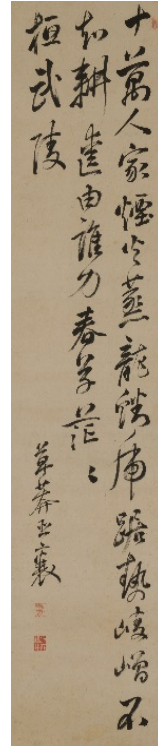 十萬人家煙火蒸龍蟠虎踞勢崚嶒不
知耕鑿由誰力春草茫〻
桓武陵
草莽臣襄